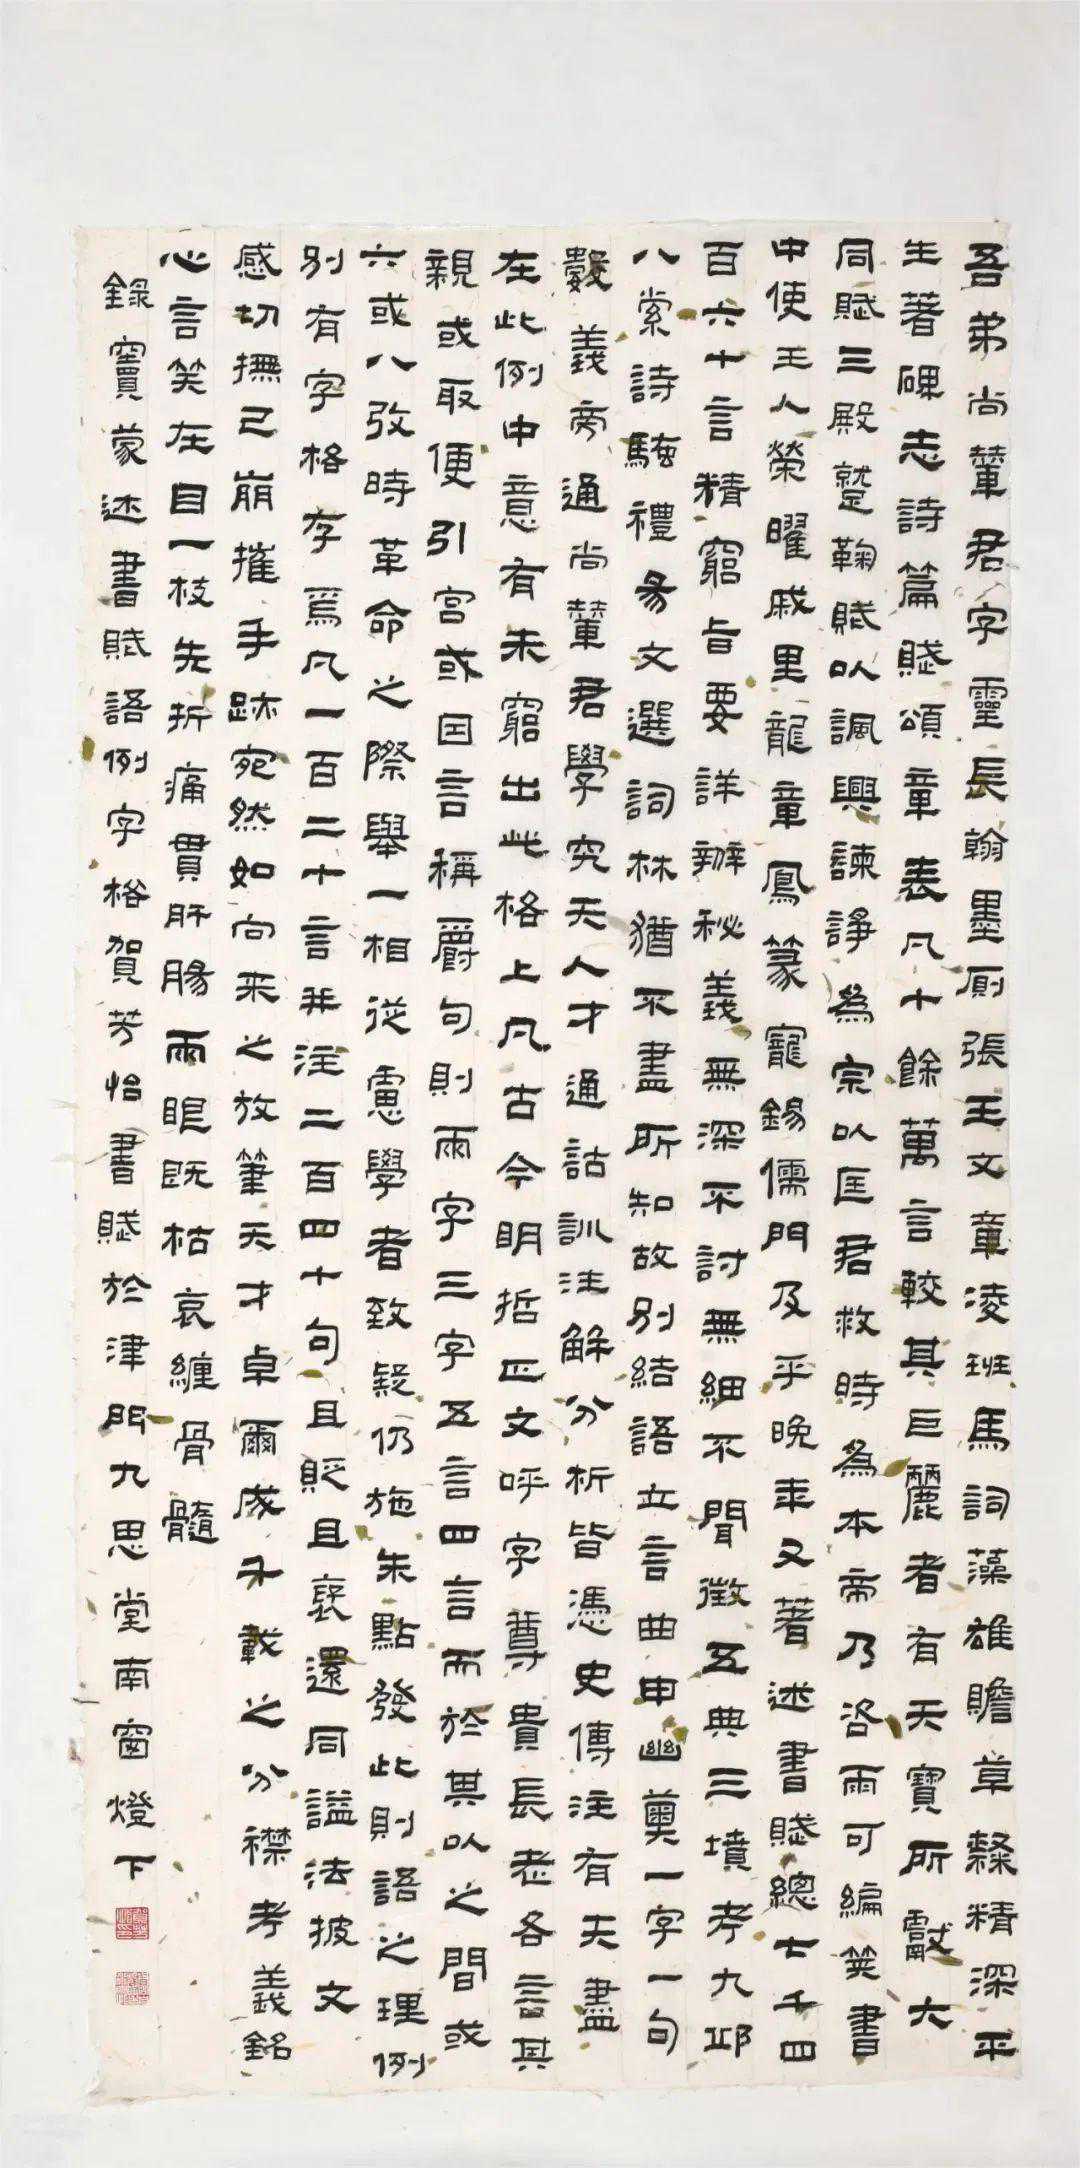 吾弟尚輦君字靈長翰墨廁張王文章凌班馬詞藻雄贍草隸精深平
生著碑志詩篇賦頌章表凡十餘萬言較其巨麗者有天寶所獻大
同賦三殿蹴鞠賦以諷興諫諍為宗以匡君救時為本帝乃洛兩可編筴書
中使王人榮曜戚里龍章鳳篆寵錫儒門及乎晚年又著述書賦總七千四
百六十言精窮旨要詳辯秘義無深不討無細不聞徵五典三墳考九邱
八索詩騷禮易文選詞林猶不盡所知故別結語立言曲申幽奧一字一句
數義旁通尚輦君學究天人才通詁訓注解分析皆憑史傳注有夫盡
在此例中意有未窮出此格上凡古今明哲正文呼字尊貴長老各言其
親或取便引宮或因言稱爵句則兩字三字五言四言而於其以之間或
六或八攷時革命之際舉一相從慮學者致疑仍施朱點發此則語之理例
別有字格存焉凡一百二十言并注二百四十句且貶且褒還同謚法披文
感切撫己崩摧手跡宛然如向來之放筆天才卓爾成千載之分襟考義銘
心言笑在目一枝先折痛貫肝腸兩眼既枯哀纏骨髓
錄竇蒙述書賦語例字格賀芳怡書賦於津門九思堂南窗燈下